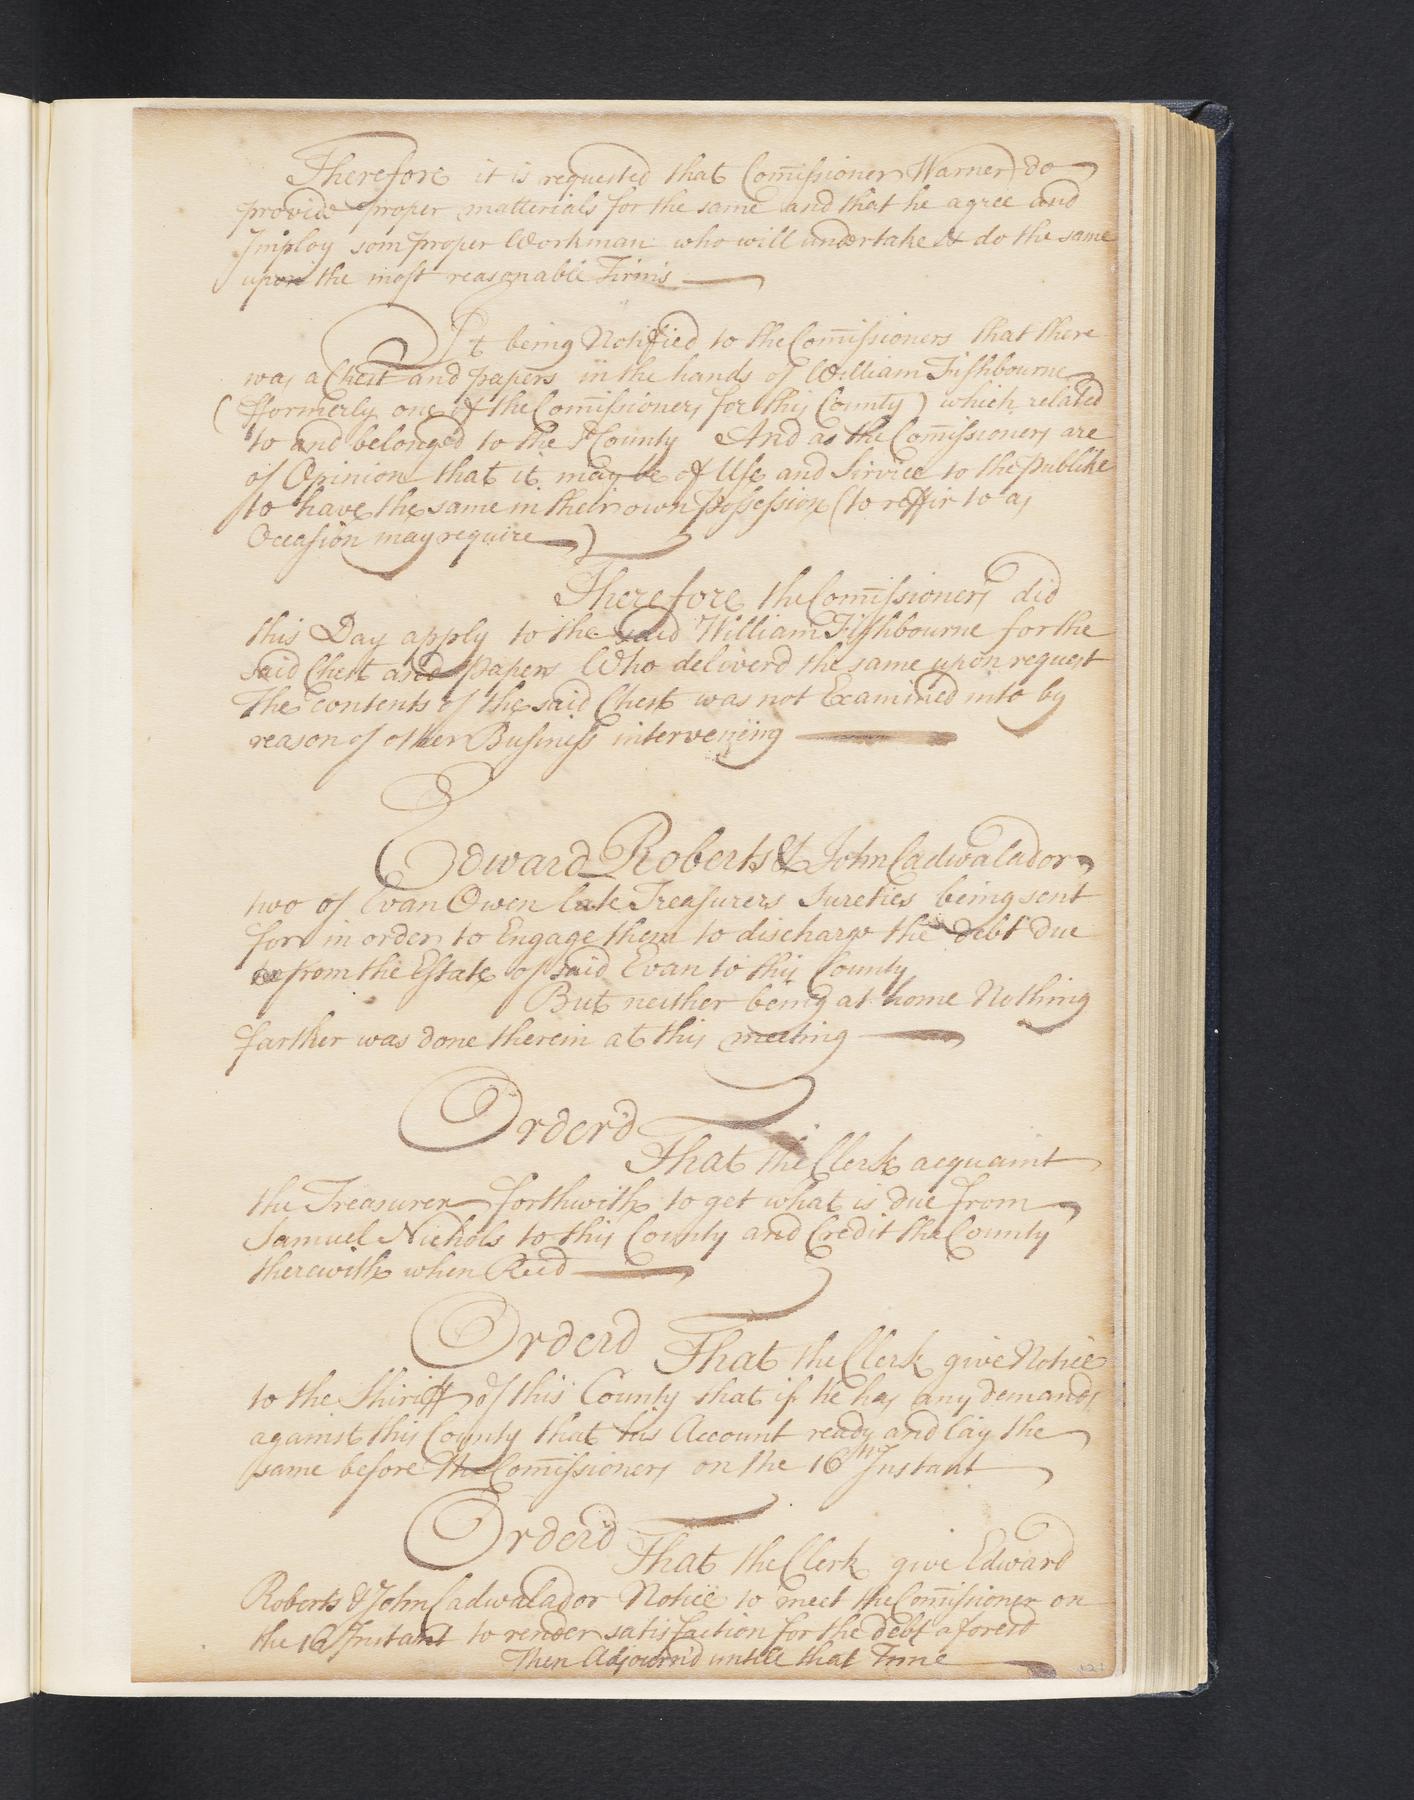 Therefore it is requested that Com̄issioner Warner do
provide proper matterials for the same and that he agree and
Imploy som proper Workman who will undertake & do the same
upon the most reasonable Tirms
It being Notified to the Com̄issioners that there
was a Chest and papers in the hands of William Fishbourne
(fformerly one of the Com̄issioners for this County) which related
to and belonged to the sd County And as the Com̄issioners are
of Opinion that it may be of Use and Sirvice to the Publike
to have the same in their own Possession (to reffir to as
Occasion may require)
Therefore the Com̄issioners did
this Day apply to the said William Fishbourne for the
Said Chest and papers Who deliverd the same upon request
The contents of the said Chest was not Examined into by
reason of other Business interveniing
Edward Roberts & John Cadwalador
two of Evan Owen late Treasurers Sureties being sent
for in order to Engage them to discharge the debt due
from the Estate of said Evan to this County
But neither being at home Nothing
farther was done therein at this meeting
Order'd
That the Clerk acquaint
the Treasurer forthwith to get what is due from
Samuel Nichols to this County and Credit the County
therewith when Recd
Orderd That the Clerk give Notice
to the Shiriff of this County that if he has any demands
against this County that his Account ready and lay the
same before the Com̄issioners on the 16th Instant
Orderd
That the Clerk give Edward
Roberts & John Cadwalador Notice to meet the Com̄issioner on
the 16 Instant to render satisfaction for the debt aforesd
Then Adjourn'd untill that Time